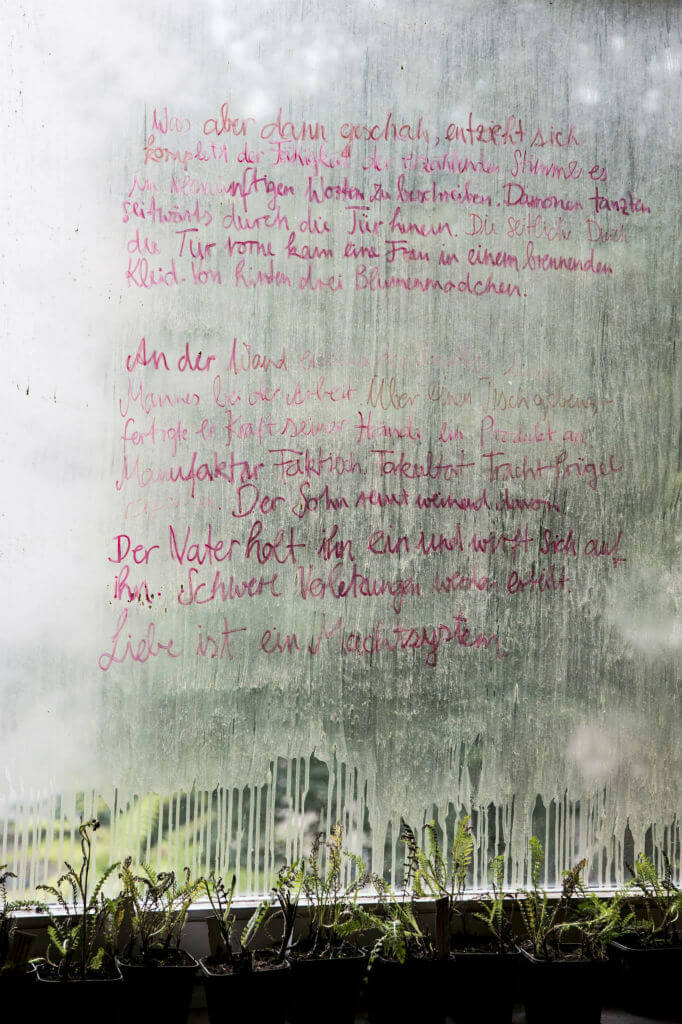 Was aber dann geschah, entzieht sich
komplett der Fähigkeit der erzählenden Stimme es
in vernünftigen Worten zu beschreiben. Dämonen tanzten
seitwärts durch die Tür hinein. Die seitliche. Durch
die Tür vorne kam eine Frau in einem brennenden
Kleid. Von hinten drei Blumenmädchen.
An der Wand
Mannes bei der Arbeit Über einen Tisch gebeugt
fertigte er Kraft seiner Hände ein Produkt an
Manufaktur Faktisch Fakultät Tracht Prügel
Der Sohn rennt weinend davon
Der Vater holt ihn ein und wirft sich auf
ihn. Schwere Verletzungen werden erteilt.
Liebe ist ein Machtsystem.